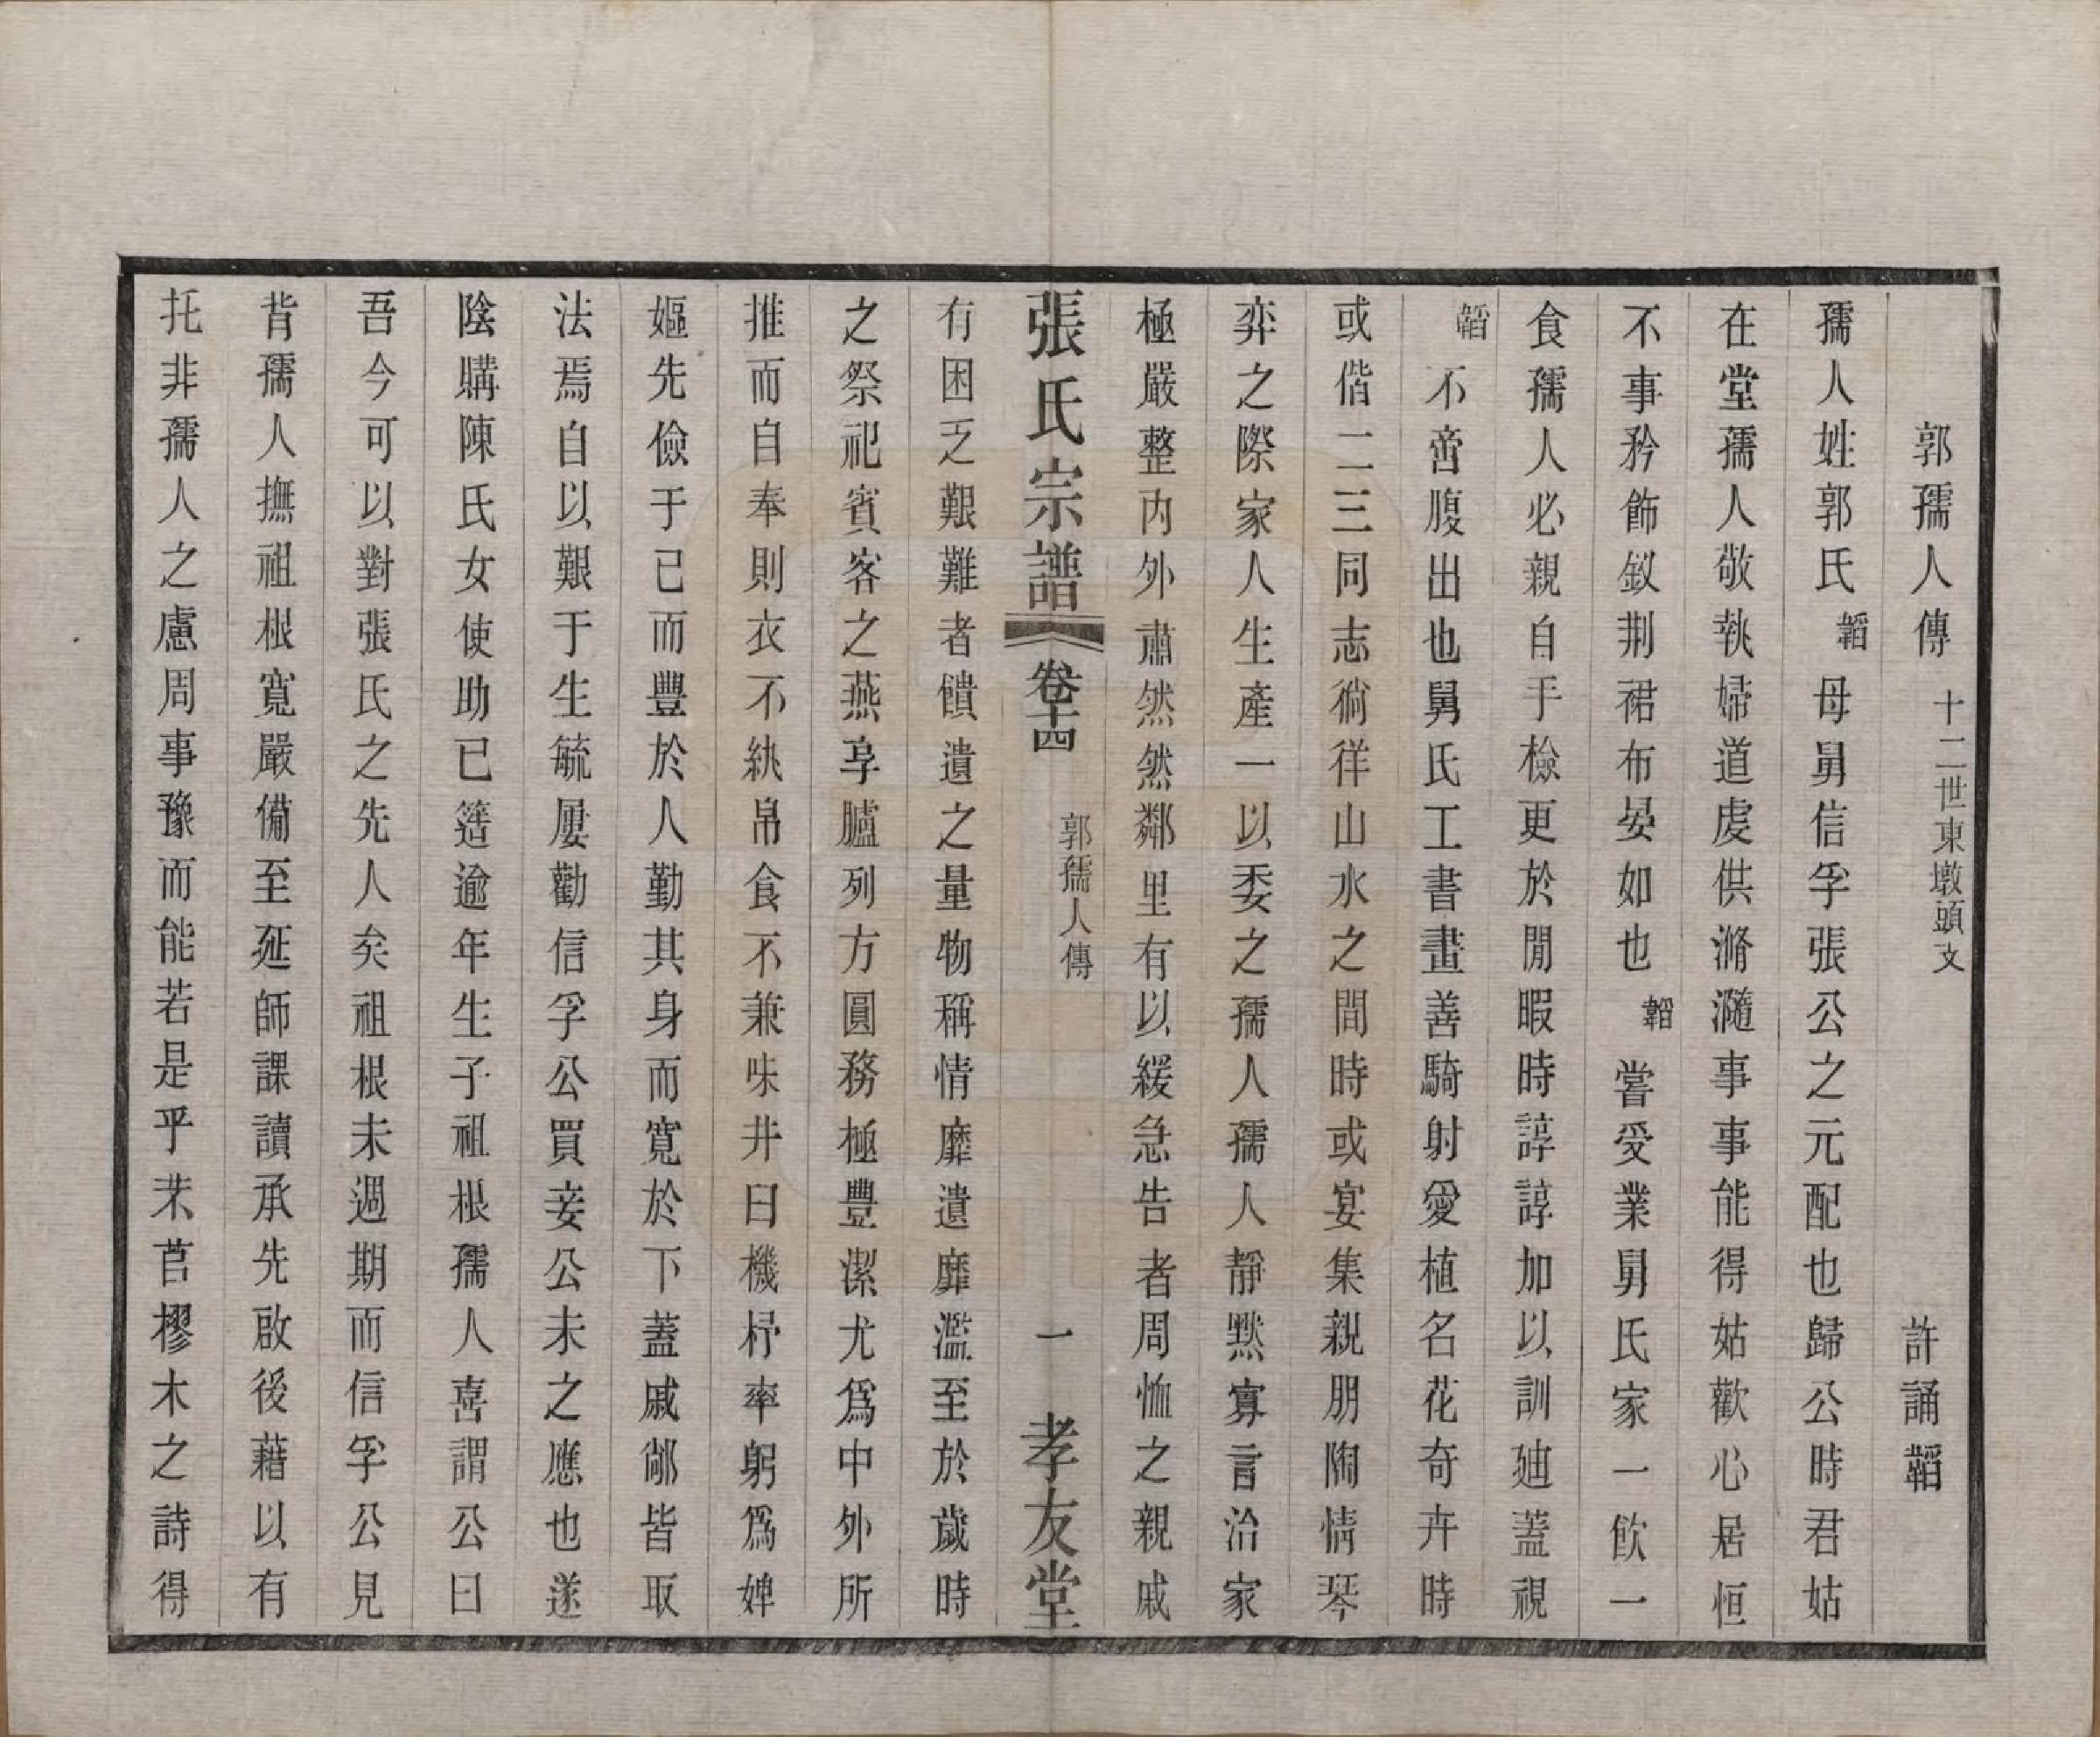 郭孺人傳 十二世東墩頭支 許誦韜
孺人姓郭氏韜母舅信孚張公之元配也歸公時君姑
在堂孺人敬執婦道虔供滫瀡事事能得姑歡心居恒
不事矜飾釵荆裙布晏如也韜嘗受業舅氏家一飲一
食孺人必親自手檢更於閒暇時諄諄加以訓廸蓋視
韜不啻腹出也舅氏工書畫善騎射愛植名花奇卉時
或偕二三同志徜徉山水之間時或宴集親朋陶情琴
弈之際家人生產一以委之孺人孺人靜默寡言治家
極嚴整內外肅然然鄰里有以緩急告者周恤之親戚
張氏宗譜 卷十四 郭孺人傳 一 孝友堂
有困乏艱難者饋遺之量物稱情靡遺靡濫至於歲時
之祭祀賓客之燕享臚列方圓務極豐潔尤爲中外所
推而自奉則衣不紈帛食不兼味井臼機杼率躬爲婢
嫗先儉于己而豐於人勤其身而寬於下蓋戚鄰皆取
法焉自以艱于生毓屢勸信孚公買妾公未之應也遂
陰購陳氏女使助已簉逾年生子祖根孺人喜謂公曰
吾今可以對張氏之先人矣祖根未週期而信孚公見
背孺人撫祖根寬嚴備至延師課讀承先啟後藉以有
托非孺人之慮周事豫而能若是乎芣苢樛木之詩得